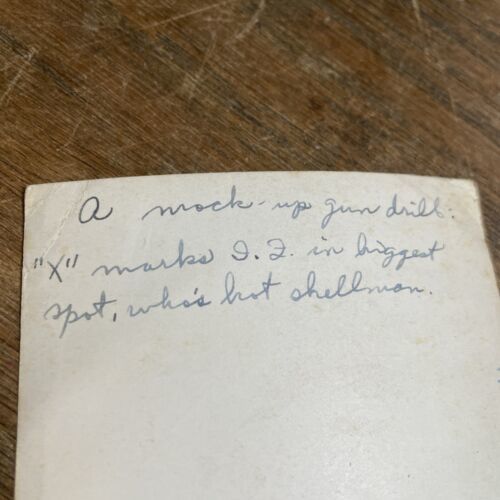 A mock-up gun drill:
"X" marks I. I. in biggest
spot, who's hot shellman.